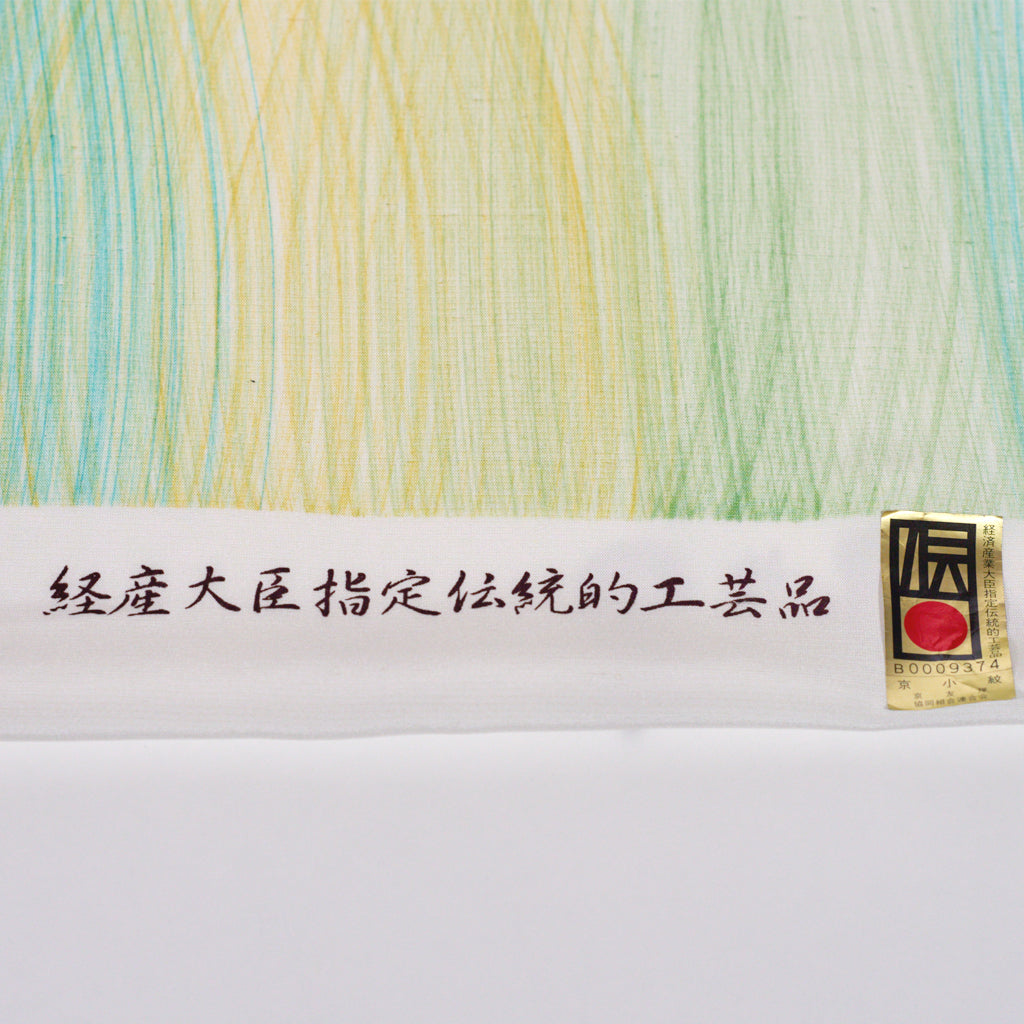 経産大臣指定伝統的工芸品
伝
経済産業大臣指定伝統的工芸品
B0009374
京小紋
京友禅
協同組合連合会